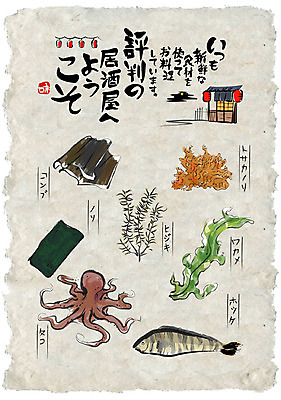 いつも
新鮮な
食材を
使って
お料理
しています。
評判の
居酒屋へ
よう
こそ
トサカノリ
コンブ
ノリ
ヒジキ
ワカメ
タコ
ホッケ